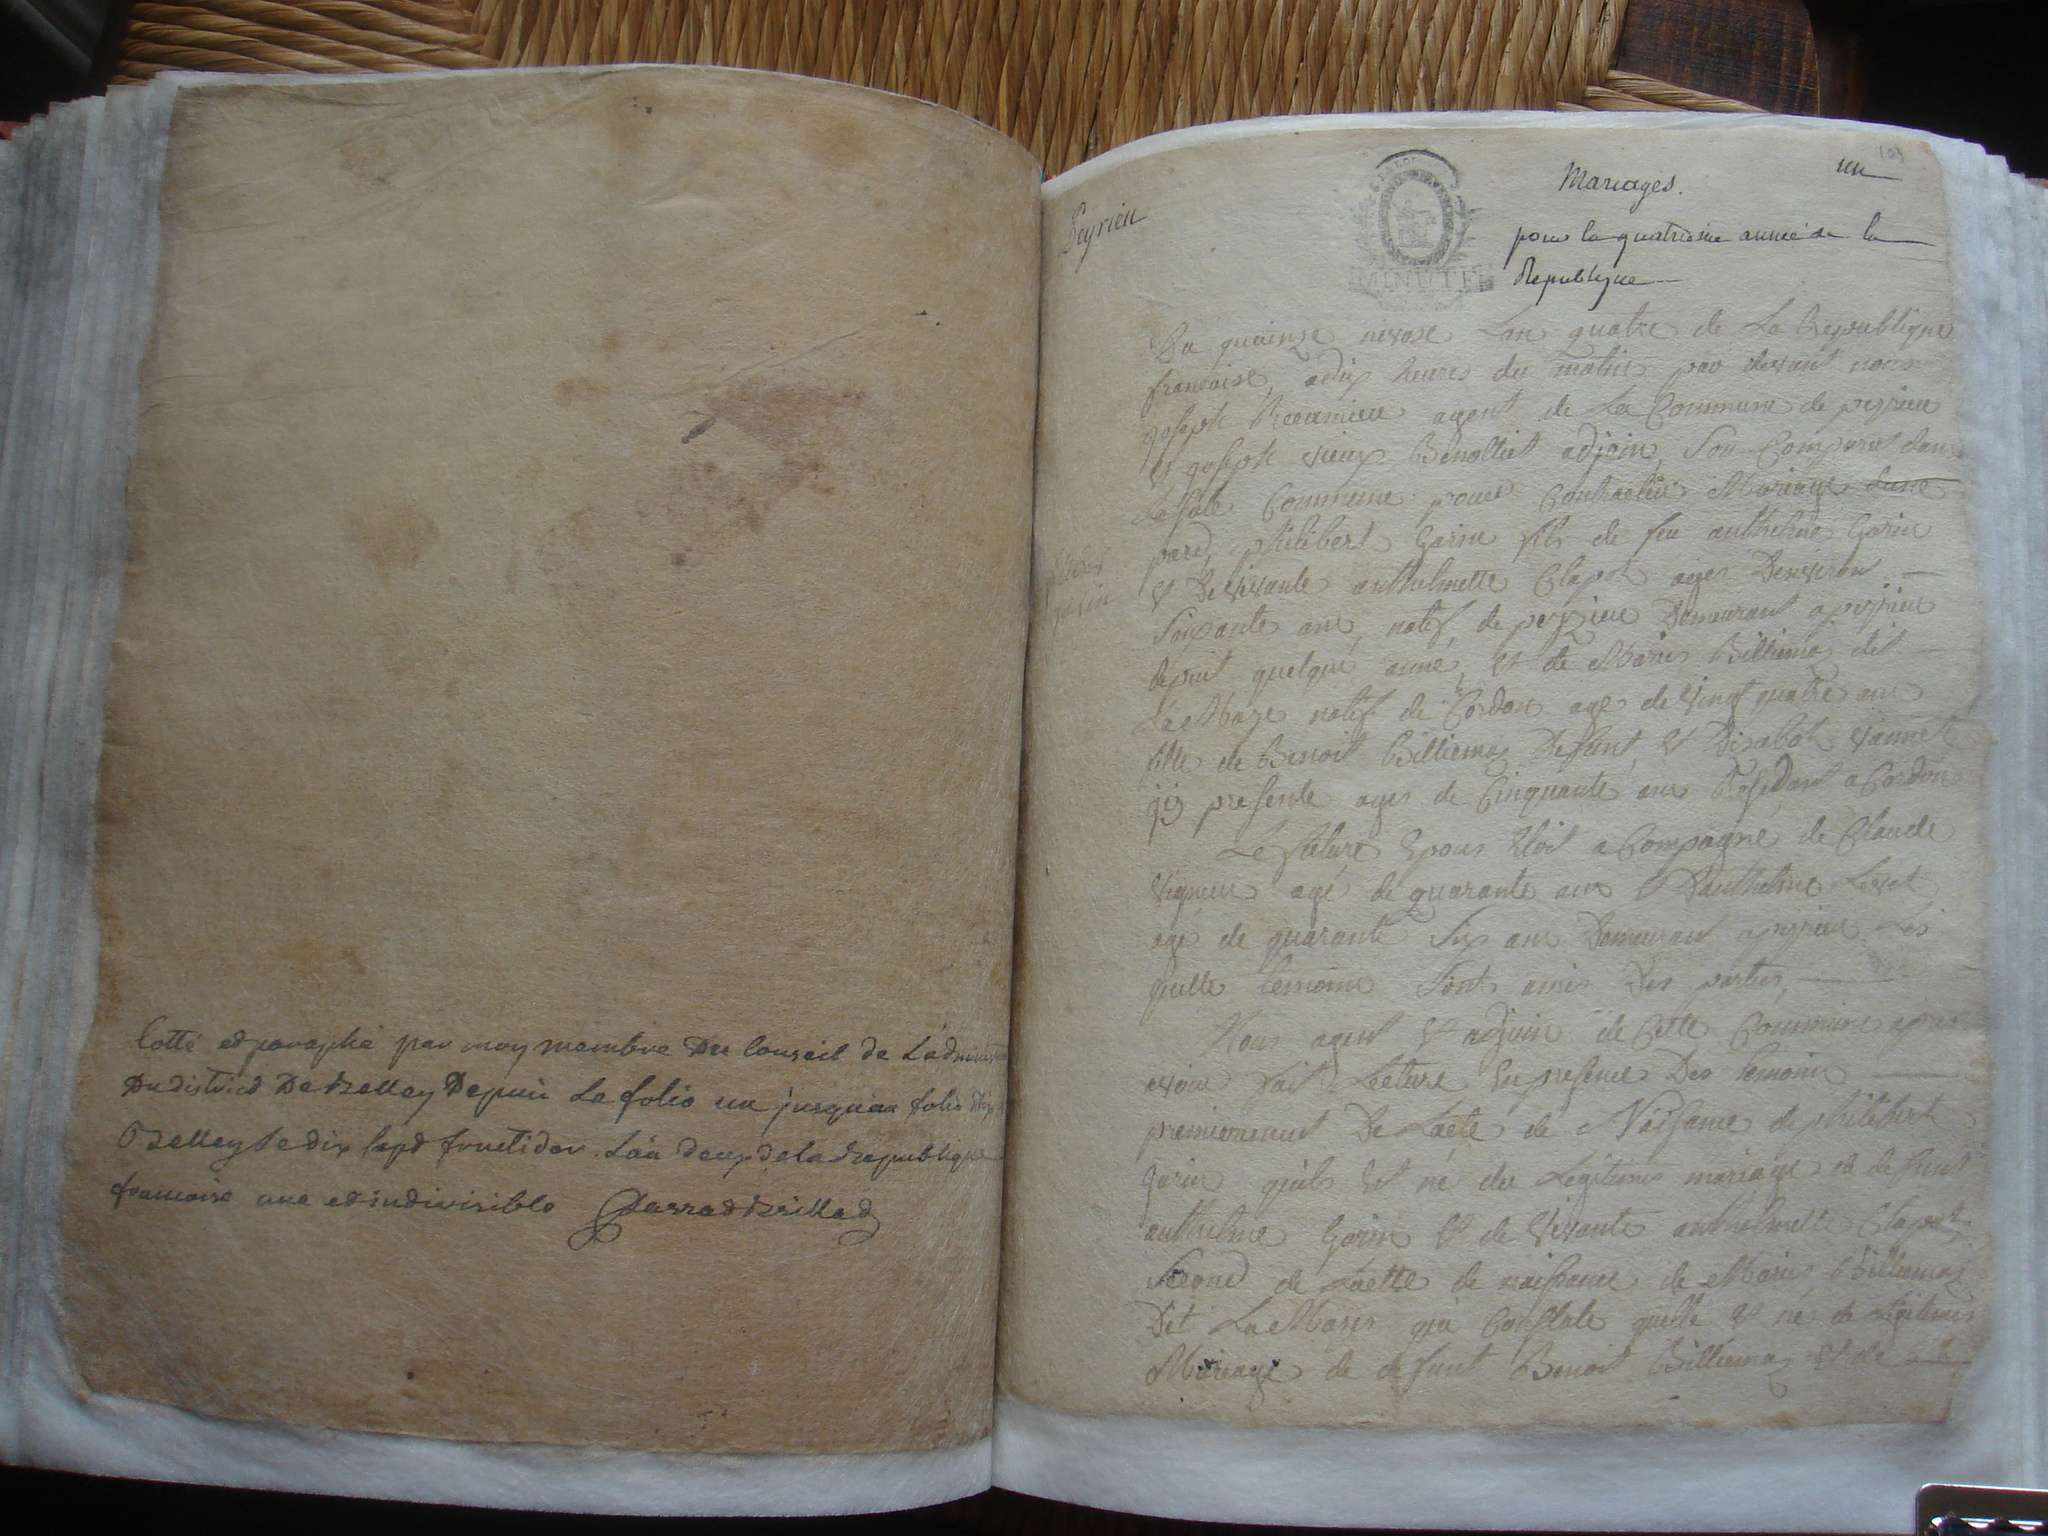 Cotté et paraphé par moy membre du Conseil de L'administ
Du district De Belley Depuis Le folio un jusqu'au folio dix
a Belley Le dix sept fructidor Lan deux de la Republique
francoise une et indivisible
Peyrieu
MINUTE
Mariages.
un
109
pour la quatrieme année de la
Republique
Du quainze nivose Lan quatre de La Republique
francoise, a dix heures du matin par devant nous
joseph Recamieu agent de La Commune de peyrieu
et joseph vieux Benottiet adjoin, Son Comparut dans
La Sale Commune pour Contracter Mariage dune
pard, philibert Garin fils de feu anthelme Garin
et De vivante anthelmette Clapot ages Denviron
Soixante ans, natif, de peyrieu Demeurant a peyrieu
depuit quelque anné, et de Marie Billiema dit
La Maze natif de Cordon age de vingt quatre ans
fille de Benoit Billiema Defunt, et Disabot vannet
jcy presente ages de Cinquante ans Residant a Cordon
Le future Epous Etoit a Compagné de Claude
vigneur agé de quarante ans Danthelme
agé de quarante Six ans Demeurant a peyrieu Les
quelle temoins Sont amis Des parties,
Nous agent et adjoin de Cette Commune apres
avoir fait Lecture En presence Des temoins
premierement De Lacte de Naissance de philibert
garin quils Et né du Legitime mariage de defunt
anthelme Garin Et de vivante anthelmette Clapot
Second de Laette de naissance de Marie Billiema
Dit La Maze qui Constate quelle Et né de Legitime
Mariage de defunt Benoit Billiema et de